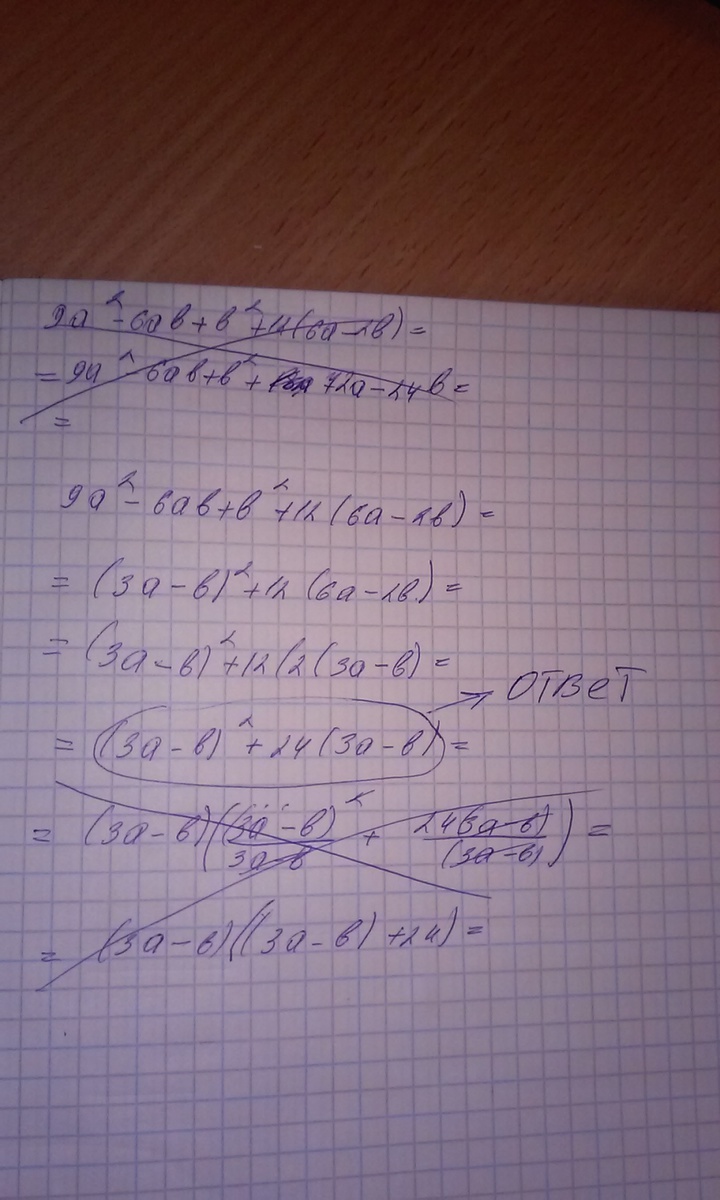 9a² - 6ab + b² + 12(6a - 2b) =
= 9a² - 6ab + b² + 72a - 24b =
=
9a² - 6ab + b² + 12(6a - 2b) =
= (3a - b)² + 12(6a - 2b) =
= (3a - b)² + 12(2(3a - b) =
= (3a - b)² + 24(3a - b) = → ОТВЕТ
= (3a - b)((3a - b)²/(3a - b) + 24(3a - b)/(3a - b)) =
= (3a - b)((3a - b) + 24) =